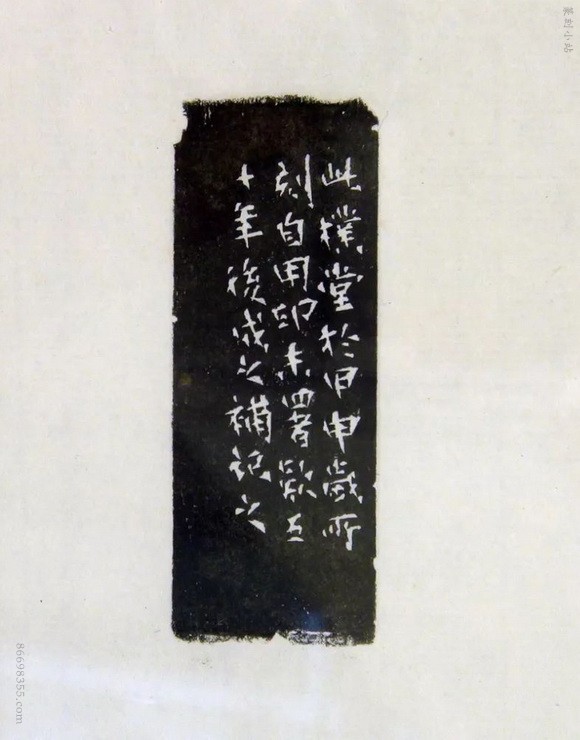 此樸堂於申歲所
刻自用印未署款五
十年後成之補記之
篆刻小站
86698355.com